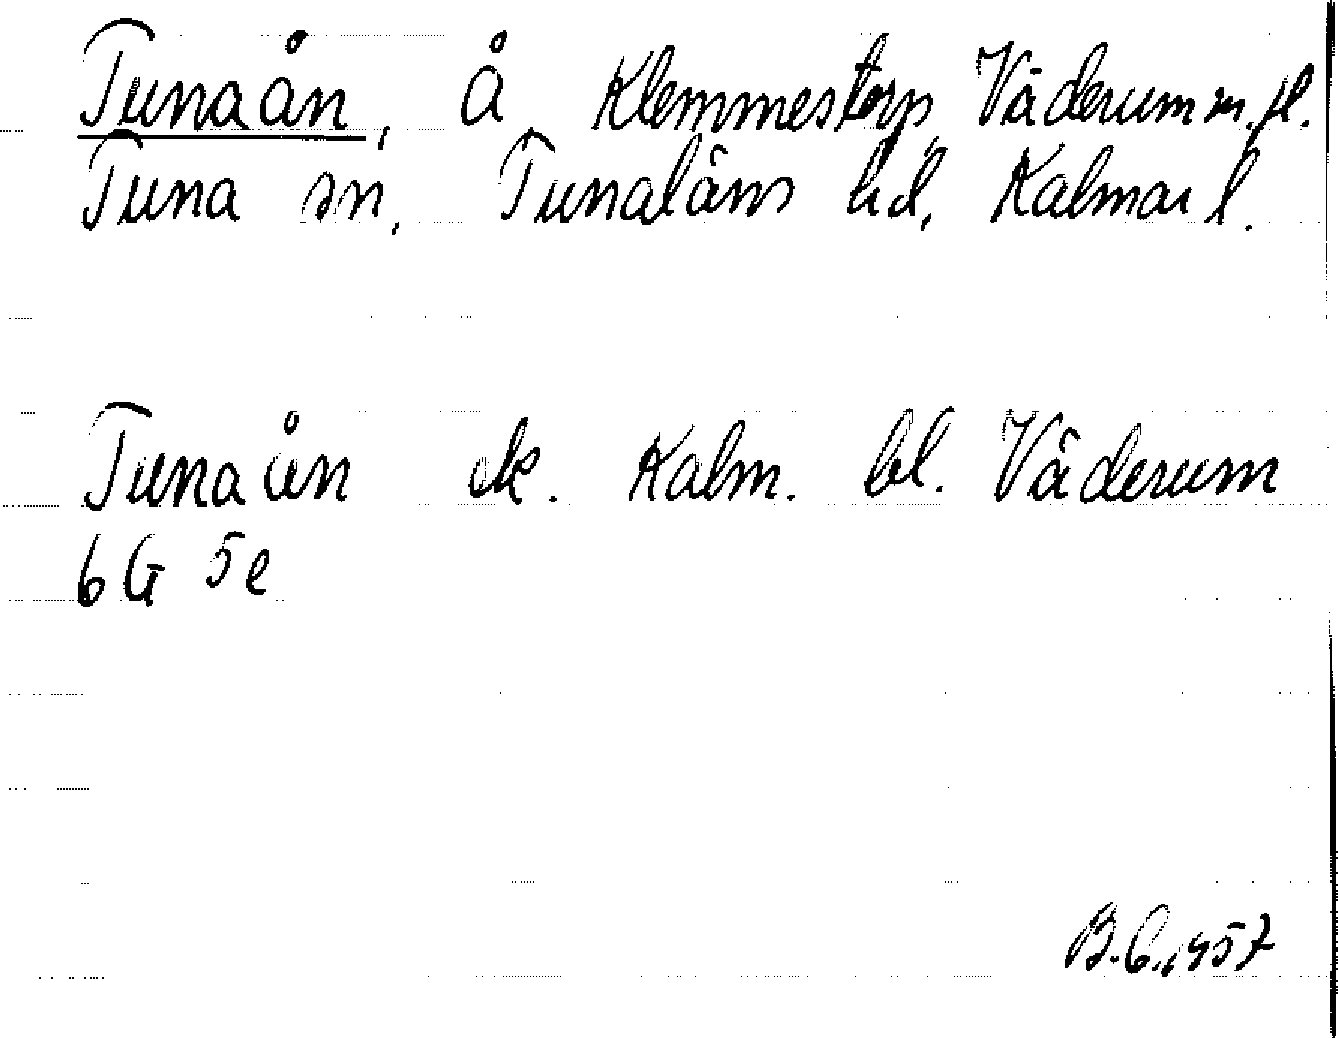 Tunaån, å Klemmestorp, Väderum m.fl.
Tuna sn, Tunaläns hd, Kalmar l.
Tunaån ek. Kalm. bl. Väderum
6G 5e
B.C. 1957